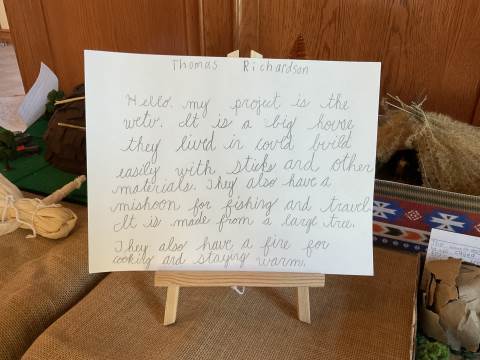 Thomas Richardson
Hello. my project is the
wetu. It is a big house
they lived in covd bvild
easily with sticks and other
materials. They also have a
mishoon for fishing and travel.
It is made from a large tree.
They also have a fire for
cooking and staying warm.